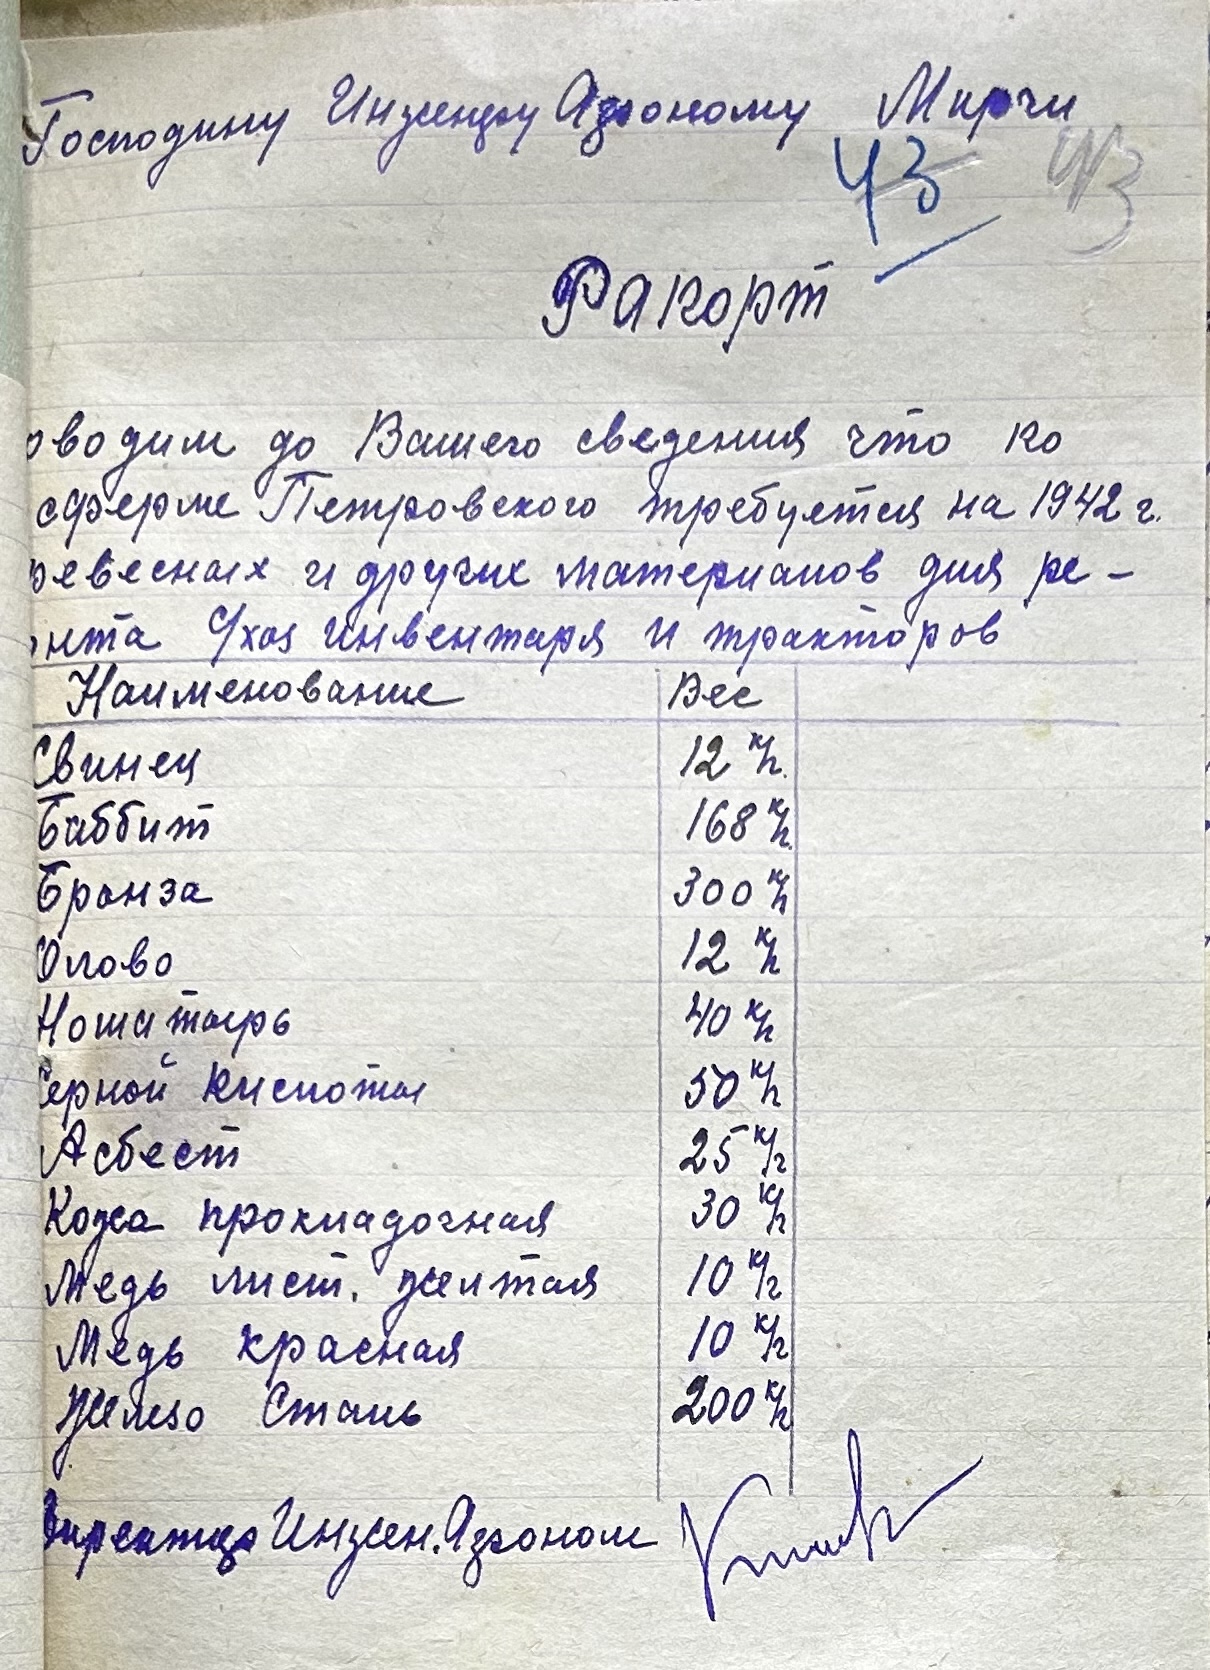 Господину Инженеру Агроному Мирчи
43 43
Рапорт
оводим до Вашего сведения что ко
сферме Петровского требуется на 1942 г.
ревесных и других материалов для ре-
онта С/хоз инвентаря и тракторов
Наименование Вес
Свинец 12 к/г.
Баббит 168 к/г.
Бронза 300 к/г
Олово 12 к/г
Ношатырь 40 к/г
Серной кислоты 50 к/г
Асбест 25 к/г
Кожа прокладочная 30 к/г
Медь лист. желтая 10 к/г
Медь красная 10 к/г
Железо Сталь 200 к/г
Инжен. Агроном